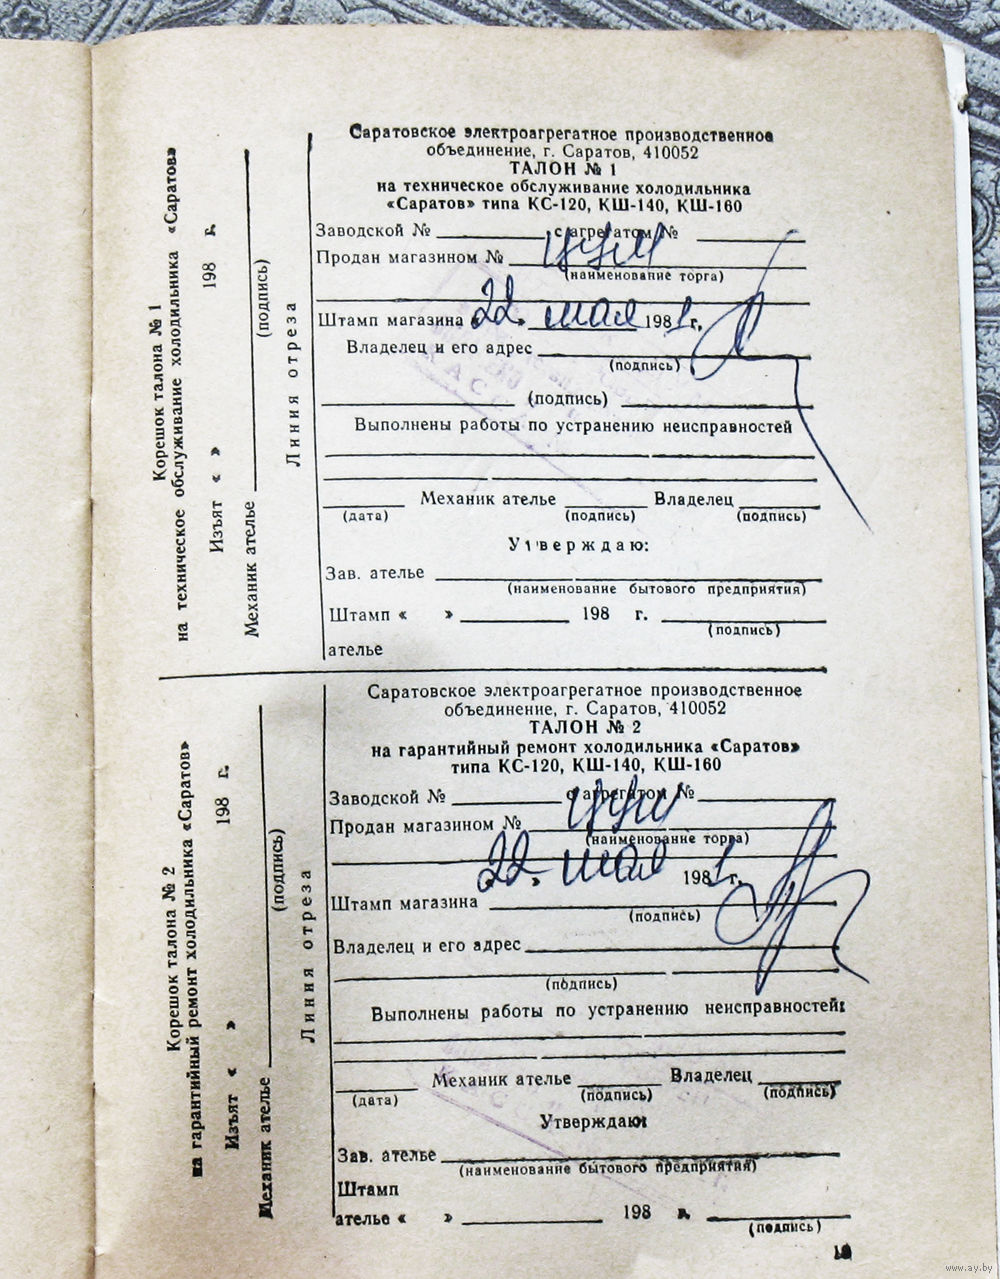 Саратовское электроагрегатное производственное
объединение, г. Саратов, 410052
ТАЛОН № 1
на техническое обслуживание холодильника
«Саратов» типа КС-120, КШ-140, КШ-160
Заводской № с агрегатом №
Продан магазином №
(наименование торга)
Штамп магазина «22» мая 1981 г.
Владелец и его адрес
(подпись)
(подпись)
Выполнены работы по устранению неисправностей
Механик ателье Владелец
(дата) (подпись) (подпись)
Утверждаю:
Зав. ателье
(наименование бытового предприятия)
Штамп « » 198 г.
(подпись)
ателье
Корешок талона № 1
на техническое обслуживание холодильника «Саратов»
Изъят « » 198 г.
Механик ателье
(подпись)
Линия отреза
Саратовское электроагрегатное производственное
объединение, г. Саратов, 410052
ТАЛОН № 2
на гарантийный ремонт холодильника «Саратов»
типа КС-120, КШ-140, КШ-160
Заводской № с агрегатом №
Продан магазином №
(наименование торга)
«22» мая 1981 г.
Штамп магазина
(подпись)
Владелец и его адрес
(подпись)
Выполнены работы по устранению неисправностей:
Механик ателье Владелец
(дата) (подпись) (подпись)
Утверждаю:
Зав. ателье
(наименование бытового предприятия)
Штамп
ателье « » 198 г.
(подпись)
Корешок талона № 2
на гарантийный ремонт холодильника «Саратов»
Изъят « » 198 г.
Механик ателье
(подпись)
Линия отреза
КАССА
www.ay.by